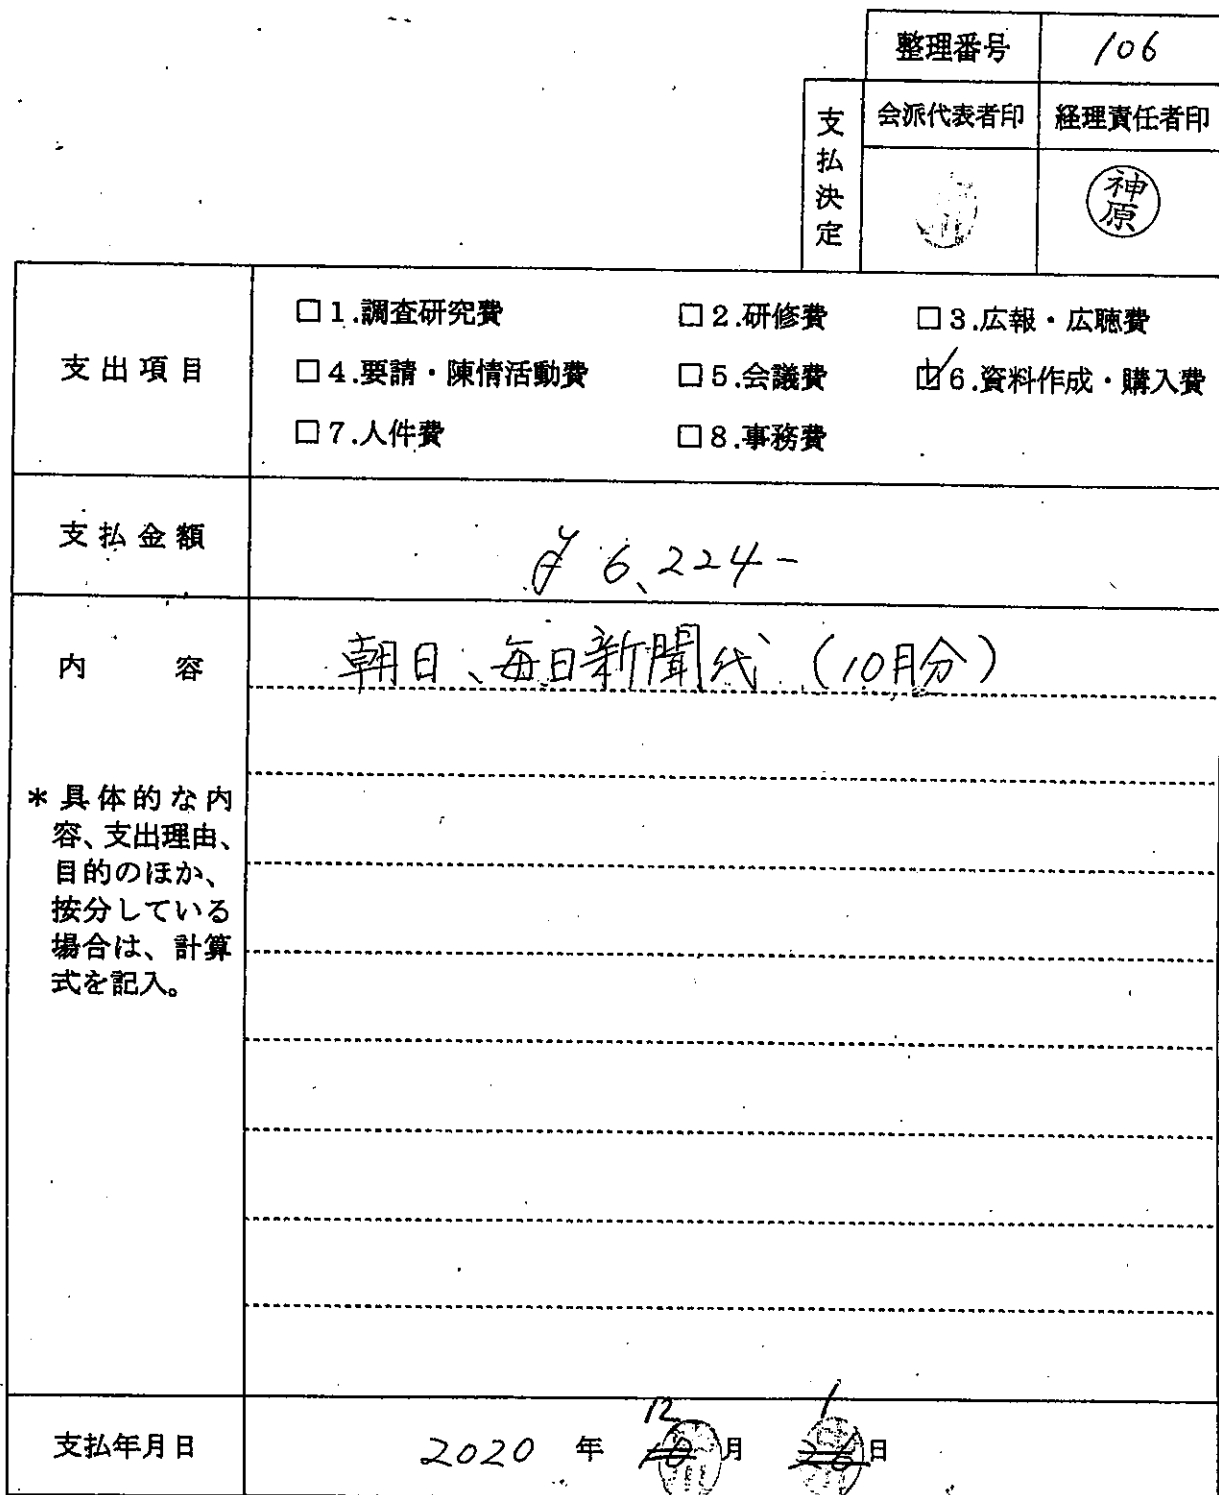 整理番号 106
支払決定
会派代表者印 経理責任者印
神原
支出項目
□1.調査研究費 □2.研修費 □3.広報・広聴費
□4.要請・陳情活動費 □5.会議費 ☑6.資料作成・購入費
□7.人件費 □8.事務費
支払金額 ¥6,224-
内容 朝日、毎日新聞代(10月分)
*具体的な内
容、支出理由、
目的のほか、
按分している
場合は、計算
式を記入。
12 1
支払年月日 2020年 10月 26日